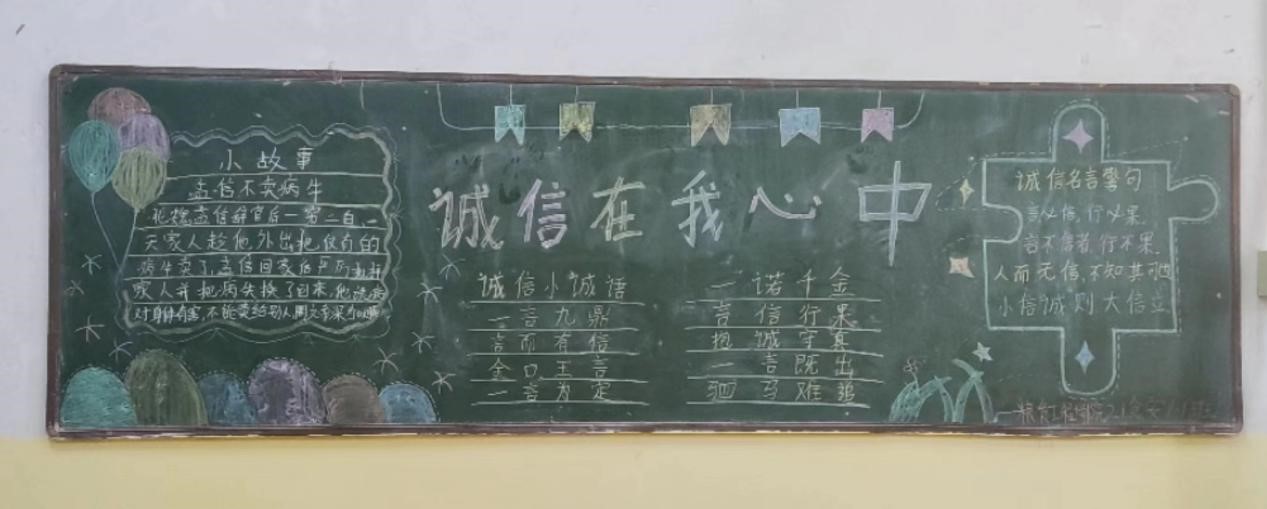 小故事
孟信不卖病牛
北魏孟信辞官后一穷二白,一
天家人趁他外出把仅有的
病牛卖了,孟信回家后严厉
家人并把病失换了回来,他说病
对身体有害,不能卖给别人
诚信在我心中
诚信小诚语
一言九鼎
言而有信
金口玉言
一言为定
一诺千金
言信行果
抱诚守真
一言既出
驷马难追
诚信名言警句
言必信,行必果.
言不信者,行不果.
人而无信,不知其可也
小信诚则大信立